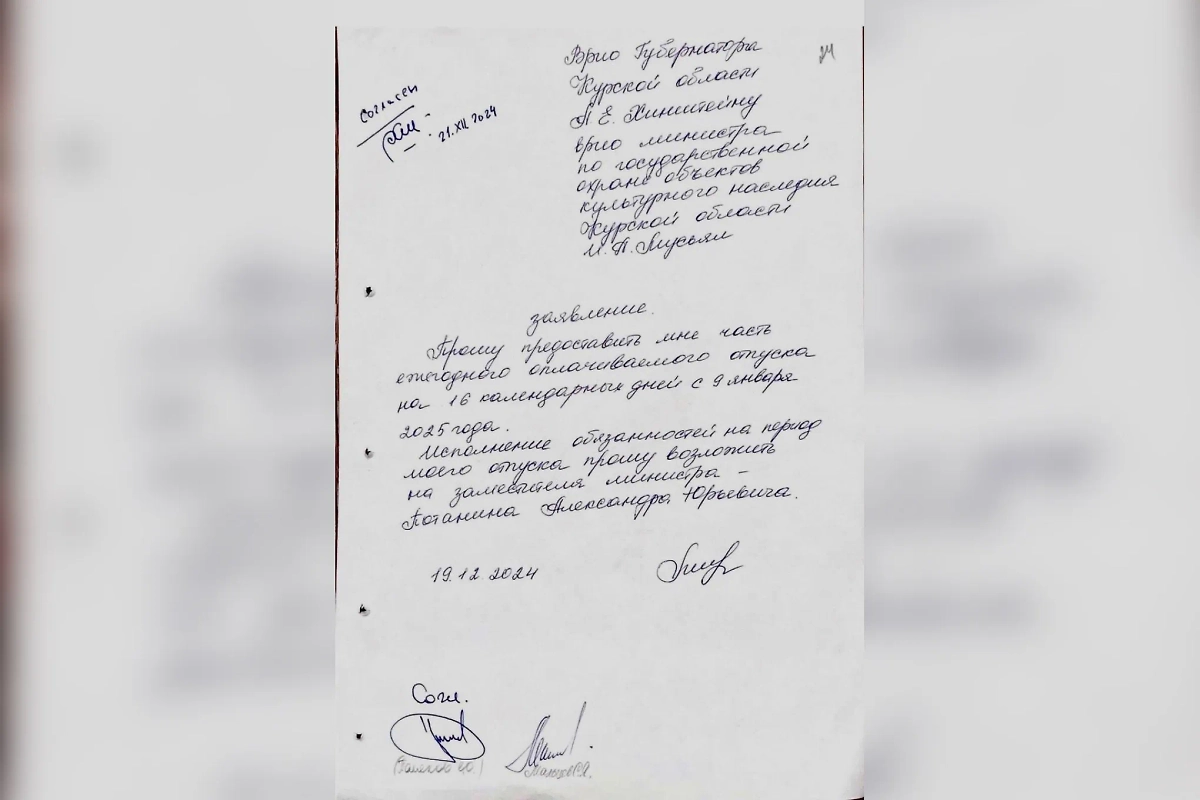 Врио Губернатора
Курской области
А Е. Хинштейну
врио министра
по государственной
охране объектов
культурного наследия
Курской области
И. А. Мусьял
24
согласен
21.XII.2024
заявление.
Прошу предоставить мне часть
ежегодного оплачиваемого отпуска
на 16 календарных дней с 9 января
2025 года.
Исполнение обязанностей на период
моего отпуска прошу возложить
на заместителя министра –
Потанина Александра Юрьевича.
19.12.2024
Согл.